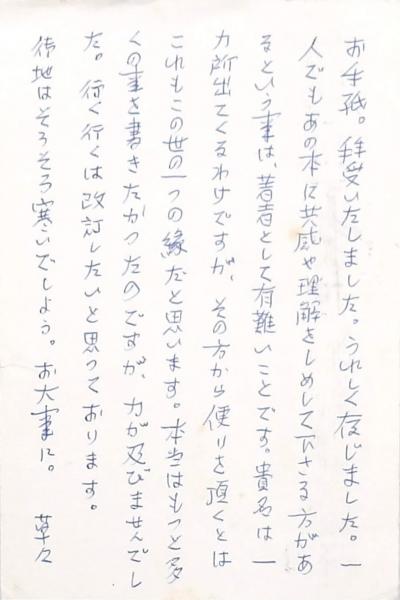 お手紙。拝受いたしました。うれしく存じました。一
人でもあの本に共感や理解をしめして下さる方があ
るという事は、著者として有難いことです。貴名は一
カ所出てくるわけですが、その方から便りを頂くとは
これもこの世の一つの縁だと思います。本当はもっと多
くの事を書きたかったのですが、力が及びませんでし
た。行く行くは改訂したいと思っております。
御地はそろそろ寒いでしょう。お大事に。 草々